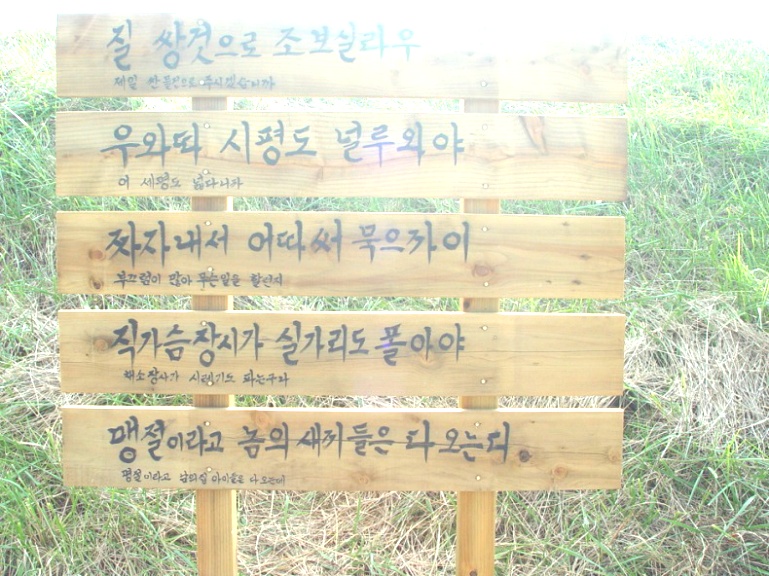 질 쌍것으로 조보실라우
제일 싼 물건으로 주시겠습니까
우와따 시평도 널루와야
이 세평도 넓다니까
짜자내서 어따써 묵으까이
부끄럼이 많아 무슨일을 할런지
직가슴장시가 실가리도 폴아야
채소장사가 시래기도 파는구나
맹절이라고 놈의새끼들은 다오는디
명절이라고 남의집 아이들은 다오는데